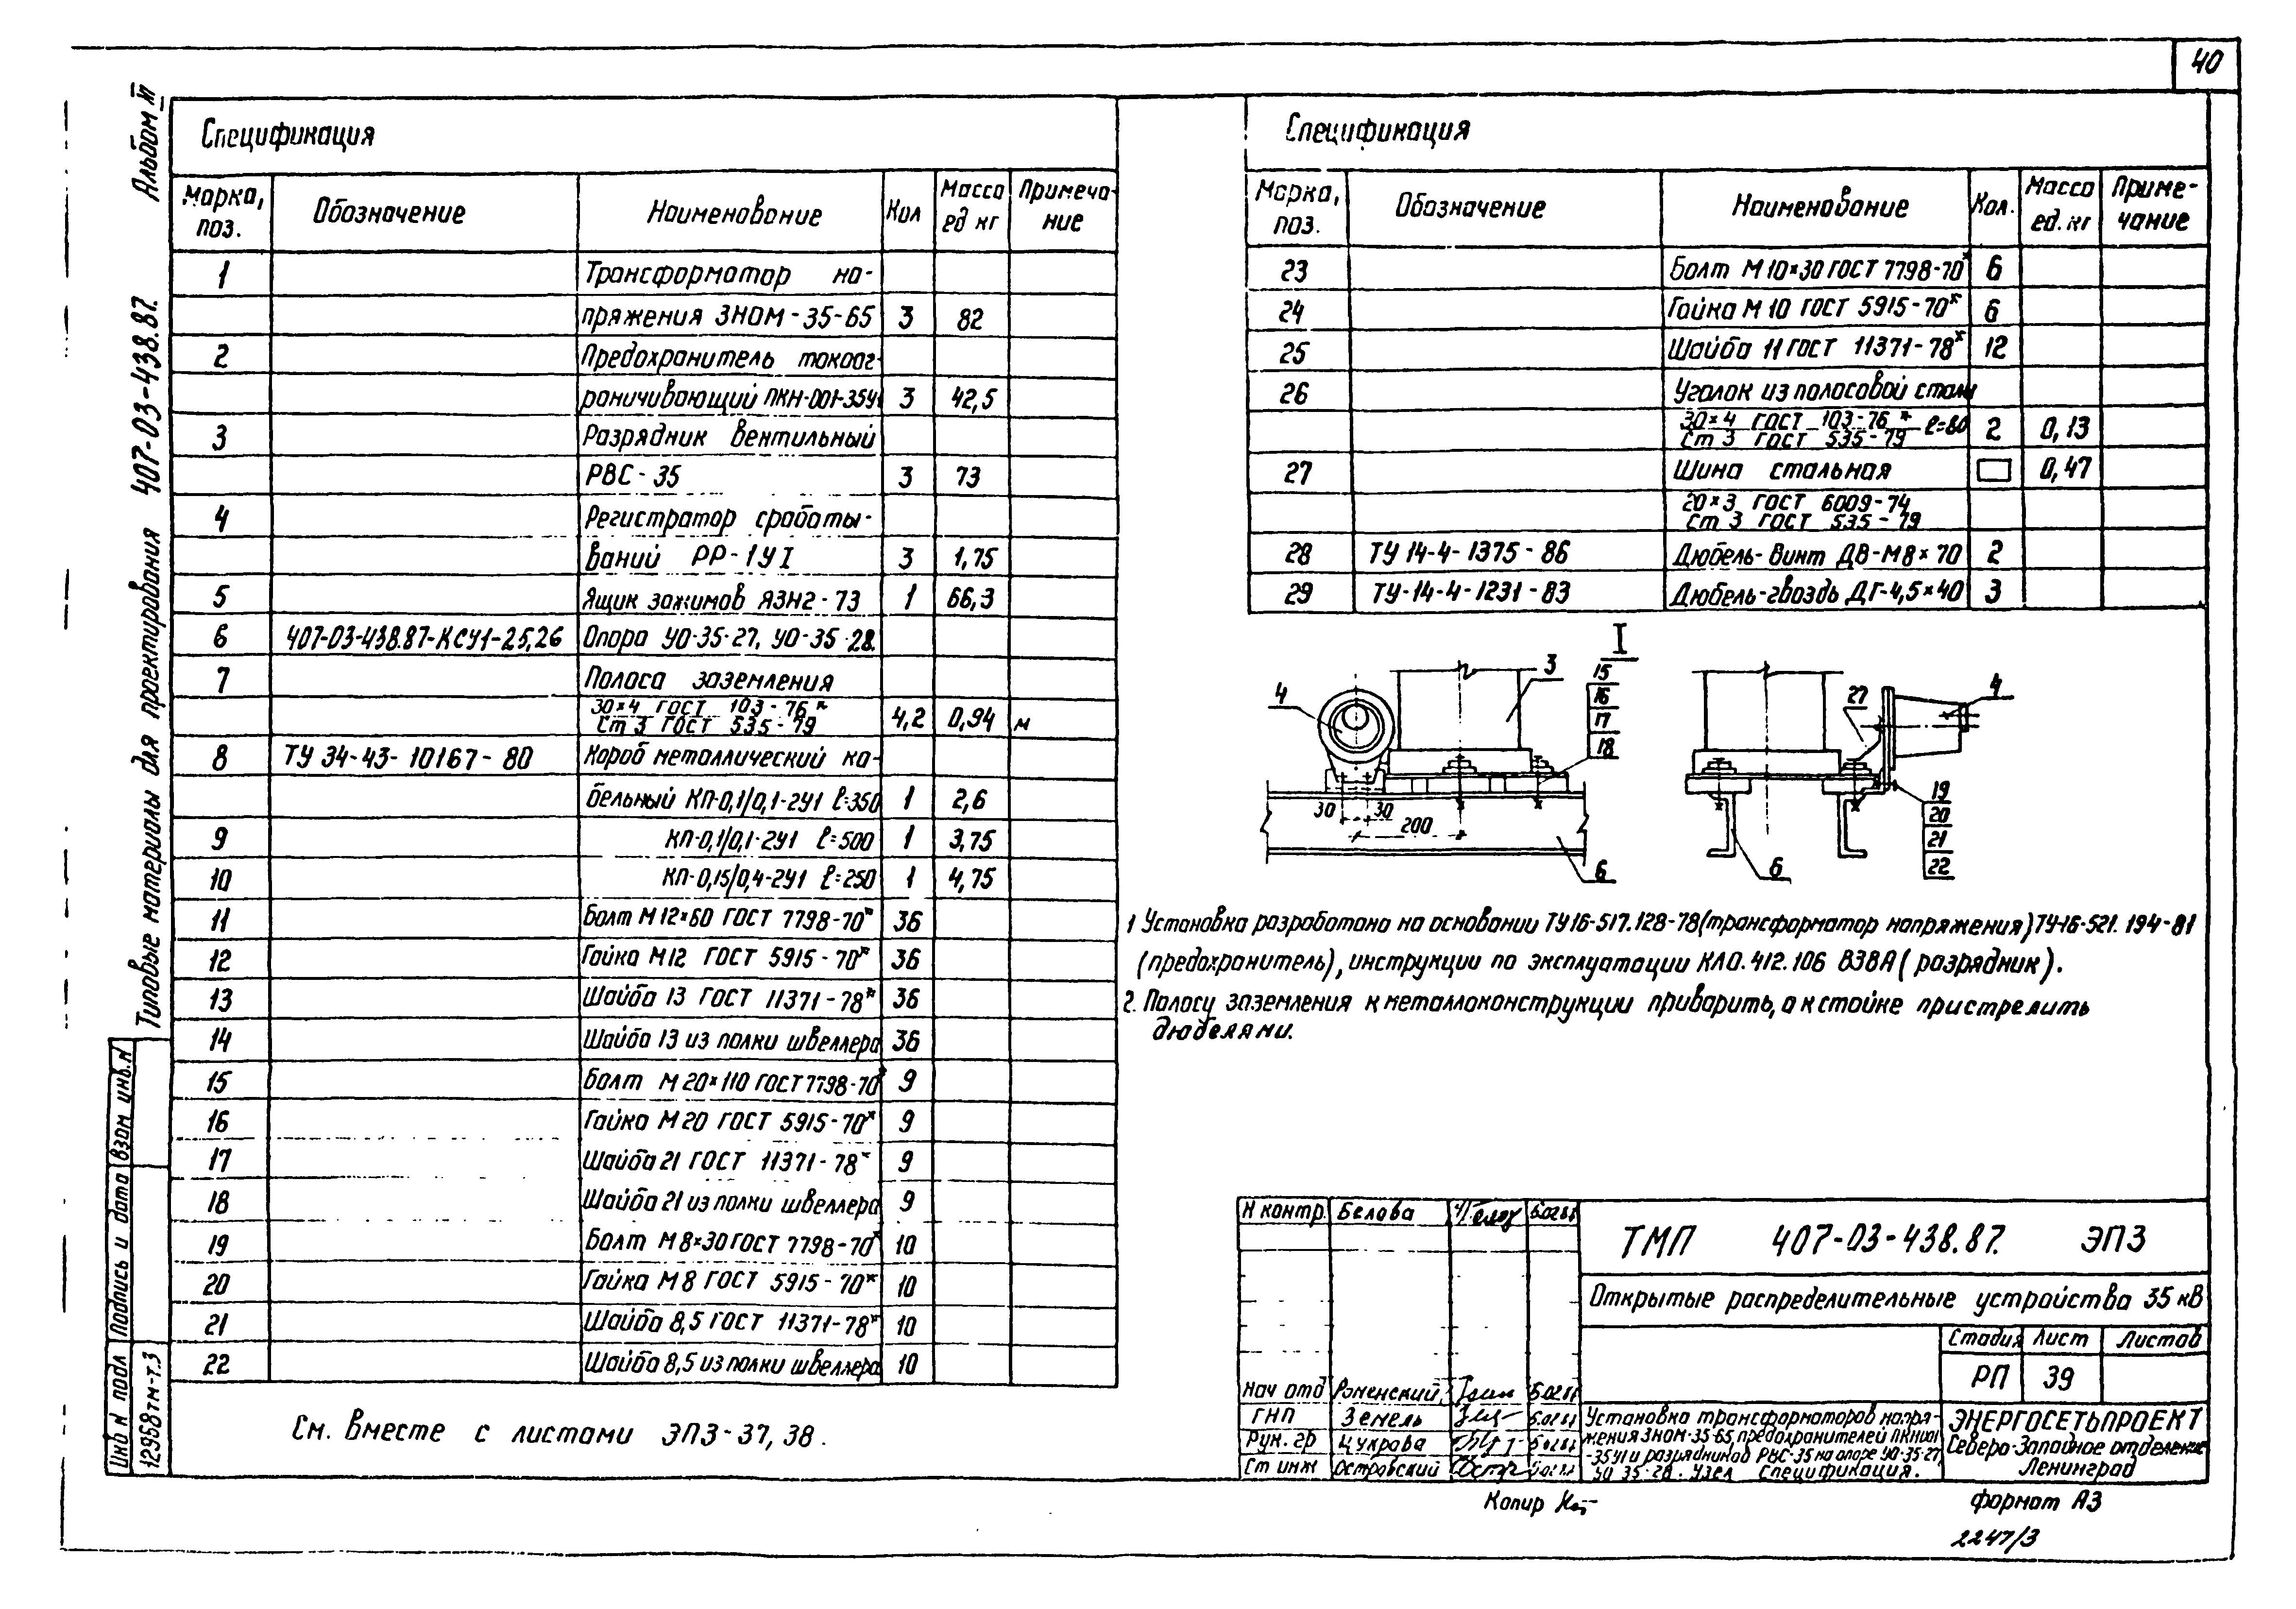 40
Альбом III
Типовые материалы для проектирования 407-03-438.87.
Взам инв. N
Подпись и дата
Инв N подл
12968тм-т.3
Спецификация
Марка, поз. Обозначение Наименование Кол Масса ед кг Примечание
1 Трансформатор на-
пряжения ЗНОМ-35-65 3 82
2 Предохранитель токоог-
раничивающий ПКН-001-35У1 3 42,5
3 Разрядник вентильный
РВС-35 3 73
4 Регистратор срабаты-
ваний РР-1У1 3 1,75
5 Ящик зажимов ЯЗН2-73 1 66,3
6 407-03-438.87-КСУ1-25,26 Опора УО-35-27, УО-35-28.
7 Полоса заземления
30×4 ГОСТ 103-76*
Ст 3 ГОСТ 535-79 4,2 0,94 м
8 ТУ 34-43-10167-80 Короб металлический ка-
бельный КП-0,1/0,1-2У1 ℓ=350 1 2,6
9 КП-0,1/0,1-2У1 ℓ=500 1 3,75
10 КП-0,15/0,4-2У1 ℓ=250 1 4,75
11 Болт М12×60 ГОСТ 7798-70* 36
12 Гайка М12 ГОСТ 5915-70* 36
13 Шайба 13 ГОСТ 11371-78* 36
14 Шайба 13 из полки швеллера 36
15 Болт М20×110 ГОСТ 7798-70* 9
16 Гайка М20 ГОСТ 5915-70* 9
17 Шайба 21 ГОСТ 11371-78* 9
18 Шайба 21 из полки швеллера 9
19 Болт М8×30 ГОСТ 7798-70* 10
20 Гайка М8 ГОСТ 5915-70* 10
21 Шайба 8,5 ГОСТ 11371-78* 10
22 Шайба 8,5 из полки швеллера 10
См. вместе с листами ЭП3-37, 38.
Спецификация
Марка, поз. Обозначение Наименование Кол. Масса ед. кг Приме-чание
23 Болт М10×30 ГОСТ 7798-70* 6
24 Гайка М10 ГОСТ 5915-70* 6
25 Шайба 11 ГОСТ 11371-78* 12
26 Уголок из полосовой стали
30×4 ГОСТ 103-76*
Ст 3 ГОСТ 535-79 ℓ=80 2 0,13
27 Шина стальная 0,47
20×3 ГОСТ 6009-74
Ст 3 ГОСТ 535-79
28 ТУ 14-4-1375-86 Дюбель-винт ДВ-М8×70 2
29 ТУ-14-4-1231-83 Дюбель-гвоздь ДГ-4,5×40 3
I
4
3
15
16
17
18
30 30
200
6
27
4
19
20
21
22
6
1 Установка разработана на основании ТУ16-517.128-78(трансформатор напряжения)ТУ-16-521.194-81
(предохранитель), инструкции по эксплуатации КЛ0.412.106 ВЗВА (разрядник).
2. Полосу заземления к металлоконструкции приварить, а к стойке пристрелить
дюбелями.
Н контр. Белова
Нач отд Роменский
ГНП Земель
Рук. гр Цукрова
Ст инж Островский
ТМП 407-03-438.87. ЭП3
Открытые распределительные устройства 35 кВ
Стадия Лист Листов
РП 39
Установка трансформаторов напря-
жения ЗНОМ-35-65, предохранителей ПКН001
-35У1 и разрядников РВС-35 на опоре УО-35-27,
УО 35-28. Узел Спецификация.
ЭНЕРГОСЕТЬПРОЕКТ
Северо-Западное отделение
Ленинград
Копир
формат А3
2247/3